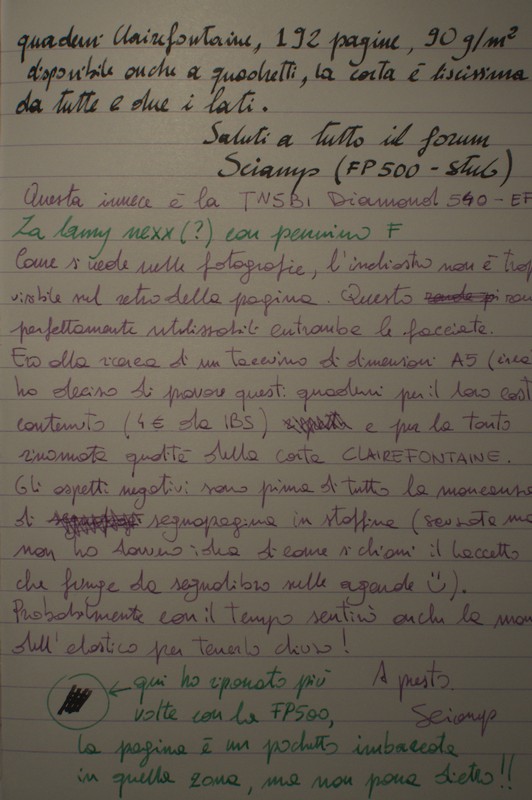 quaderni Clairefontaine, 192 pagine, 90 g/m²
disponibile anche a quadretti, la carta è liscissima
da tutte e due i lati.
Saluti a tutto il forum
Scianys (FP500 - Stub)
Questa invece è la TWSBI Diamond 540 - EF
La lamy nexx (?) con pennino F
Come si vede nelle fotografie, l'inchiostro non è trop
visibile sul retro della pagina. Questo
perfettamente utilizzabili entrambe le facciate.
Ero alla ricerca di un taccuino di dimensioni A5 (circa
ho deciso di provare questi quaderni per il loro cost
contenuto (4 € da IBS) e per la tanto
rinomata qualità della carta CLAIREFONTAINE.
Gli aspetti negativi sono prima di tutto la mancanza
di segnapagina in stoffina (scusate ma
non ho davvero idea di come si chiami il laccetto
che funge da segnalibro nelle agende :)).
Probabilmente con il tempo sentirò anche la man
dell'elastico per tenerlo chiuso!
← qui ho ripassato più A presto.
volte con la FP500, Scianys
la pagina è un pochetto imbarcata
in quella zona, ma non passa dietro!!